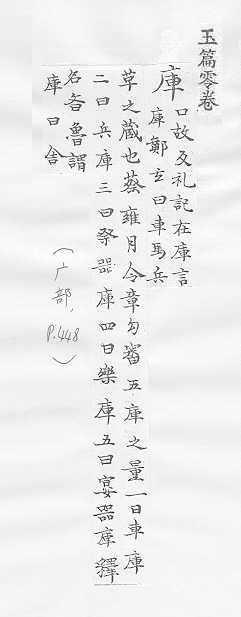 玉篇零卷
庫
口故反礼記在庫言
庫鄭玄曰車馬兵
草之蔵也蔡雍月令章句審五庫之量一曰車庫
二曰兵庫三曰祭器庫四曰樂庫五曰宴器庫釋
名斉魯謂
庫曰舍
(广部, P.448)